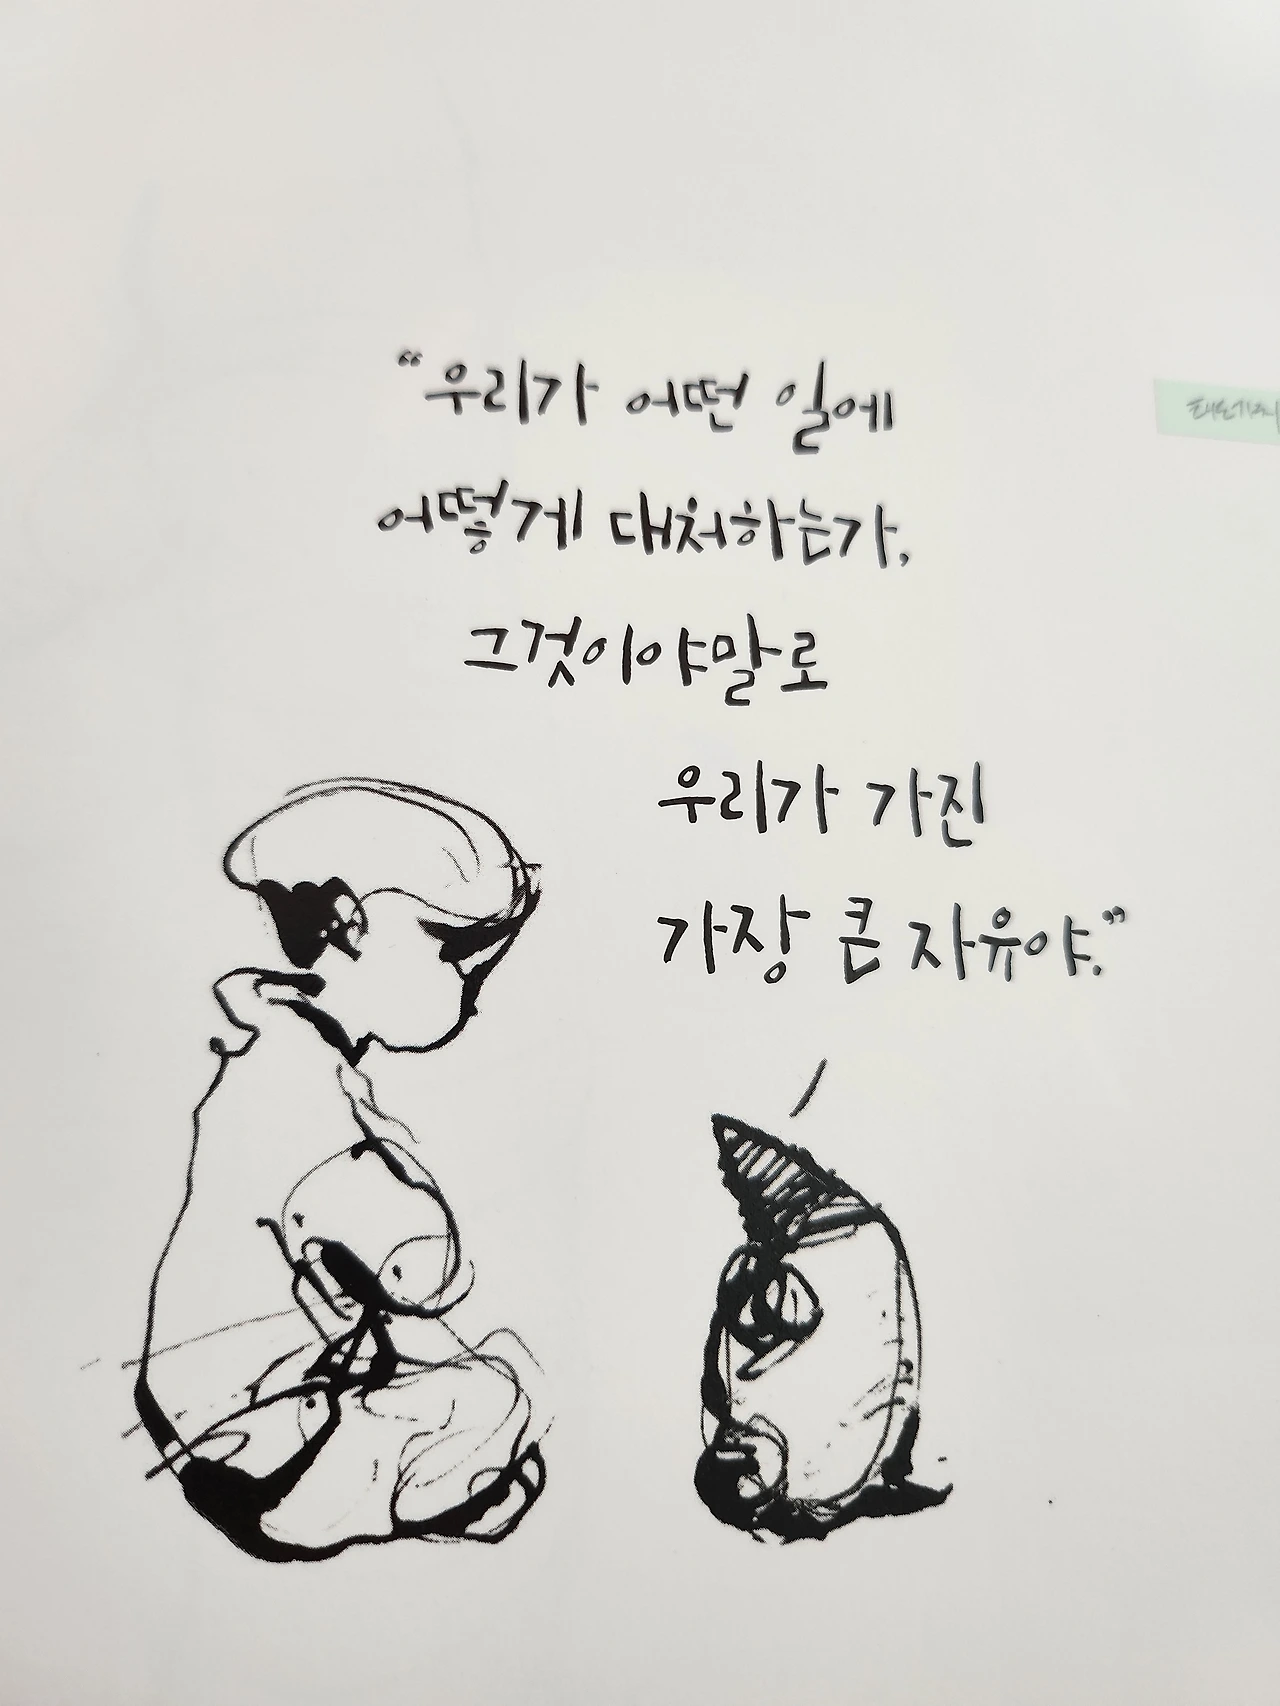 “우리가 어떤 일에
어떻게 대처하는가,
그것이야말로
우리가 가진
가장 큰 자유야.”